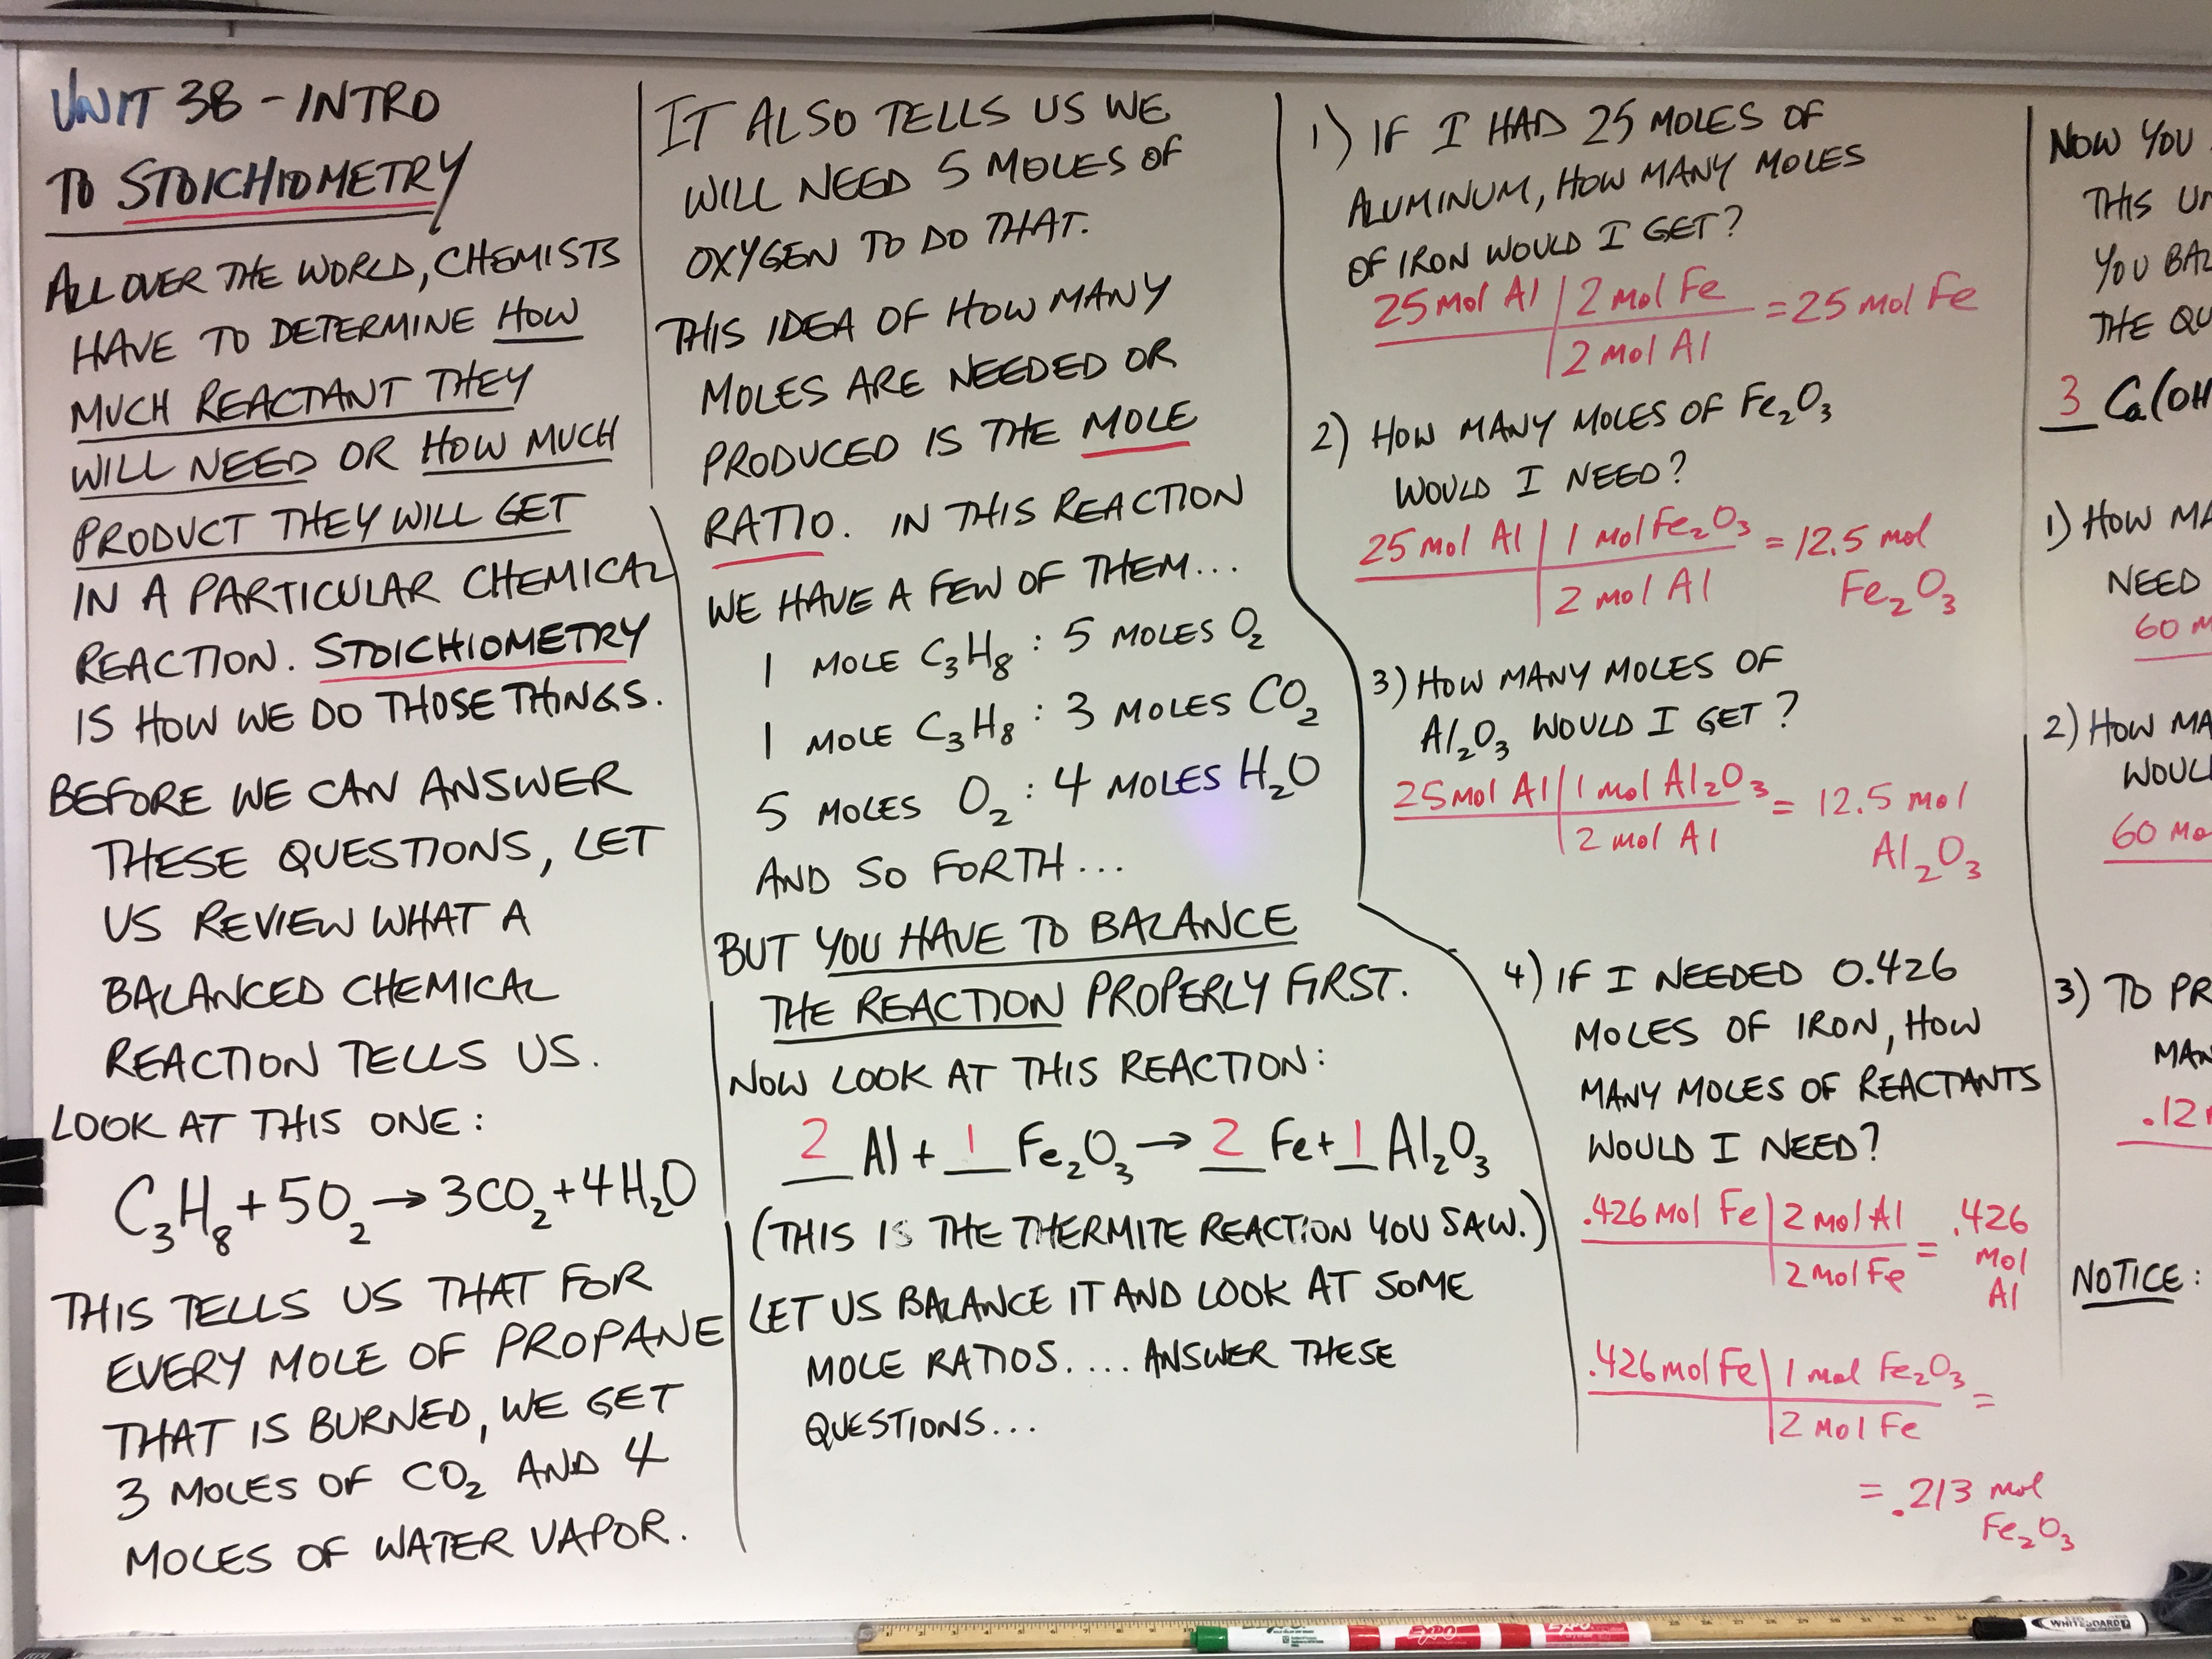 UNIT 3B - INTRO
TO STOICHIOMETRY
ALL OVER THE WORLD, CHEMISTS
HAVE TO DETERMINE HOW
MUCH REACTANT THEY
WILL NEED OR HOW MUCH
PRODUCT THEY WILL GET
IN A PARTICULAR CHEMICAL
REACTION. STOICHIOMETRY
IS HOW WE DO THOSE THINGS.
BEFORE WE CAN ANSWER
THESE QUESTIONS, LET
US REVIEW WHAT A
BALANCED CHEMICAL
REACTION TELLS US.
LOOK AT THIS ONE:
C₃H₈ + 5O₂ → 3CO₂ + 4H₂O
THIS TELLS US THAT FOR
EVERY MOLE OF PROPANE
THAT IS BURNED, WE GET
3 MOLES OF CO₂ AND 4
MOLES OF WATER VAPOR.
IT ALSO TELLS US WE
WILL NEED 5 MOLES OF
OXYGEN TO DO THAT.
THIS IDEA OF HOW MANY
MOLES ARE NEEDED OR
PRODUCED IS THE MOLE
RATIO. IN THIS REACTION
WE HAVE A FEW OF THEM...
1 MOLE C₃H₈ : 5 MOLES O₂
1 MOLE C₃H₈ : 3 MOLES CO₂
5 MOLES O₂ : 4 MOLES H₂O
AND SO FORTH...
BUT YOU HAVE TO BALANCE
THE REACTION PROPERLY FIRST.
NOW LOOK AT THIS REACTION:
2 Al + 1 Fe₂O₃ → 2 Fe + 1 Al₂O₃
(THIS IS THE THERMITE REACTION YOU SAW.)
LET US BALANCE IT AND LOOK AT SOME
MOLE RATIOS.... ANSWER THESE
QUESTIONS...
1) IF I HAD 25 MOLES OF
ALUMINUM, HOW MANY MOLES
OF IRON WOULD I GET?
25 mol Al | 2 mol Fe = 25 mol Fe
2 mol Al
2) HOW MANY MOLES OF Fe₂O₃
WOULD I NEED?
25 mol Al | 1 mol Fe₂O₃ = 12.5 mol
2 mol Al Fe₂O₃
3) HOW MANY MOLES OF
Al₂O₃ WOULD I GET?
25 mol Al | 1 mol Al₂O₃ = 12.5 mol
2 mol Al Al₂O₃
4) IF I NEEDED 0.426
MOLES OF IRON, HOW
MANY MOLES OF REACTANTS
WOULD I NEED?
.426 mol Fe | 2 mol Al = .426
2 mol Fe mol
Al
.426 mol Fe | 1 mol Fe₂O₃ =
2 mol Fe
= .213 mol
Fe₂O₃
NOW YOU
THIS
YOU
THE
3 Ca(OH
1) HOW
NEED
60
2) HOW
60
3) TO
.12
NOTICE:
EXPO
WHITEBOARD